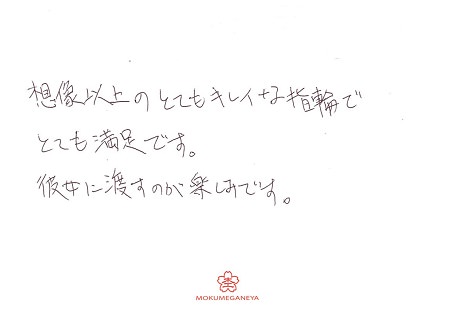 想像以上のとてもキレイな指輪で
とても満足です。
彼女に渡すのが楽しみです。
MOKUMEGANEYA